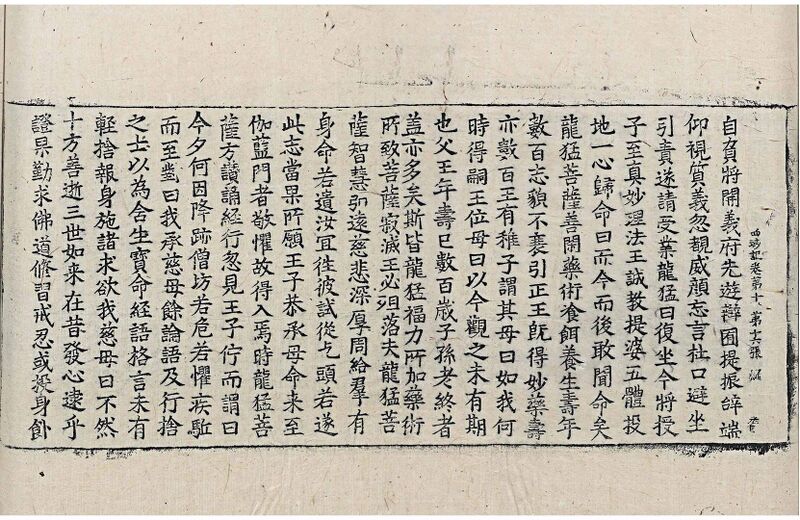 自負將開義府先遊辯囿提振辝端
西域記卷第十 第十六張
仰視質義忽覩威顔忘言杜口避坐
引責遂請受業龍猛曰復坐今將授
子至真妙理法王誠教提婆五體投
地一心歸命曰而今而後敢聞命矣
龍猛菩薩善閑藥術飡餌養生壽年
數百志貌不衰引正王旣得妙藥壽
亦數百王有稚子謂其母曰如我何
時得嗣王位母曰以今觀之未有期
也父王年壽已數百歲子孫老終者
盖亦多矣斯皆龍猛福力所加藥術
所致菩薩寂滅王必殂落夫龍猛菩
薩智慧弘遠慈悲深厚周給羣有
身命若遺汝宜往彼試從乞頭若遂
此志當果所願王子恭承母命来至
伽藍門者敬懼故得入焉時龍猛菩
薩方讚誦經行忽見王子佇而謂曰
今夕何因降跡僧坊若危若懼疾駈
而至對曰我承慈母餘論語及行捨
之士以為含生寶命經語格言未有
輕捨報身施諸求欲我慈母曰不然
十方善逝三世如来在昔發心逮乎
證果勤求佛道修習戒忍或投身飤